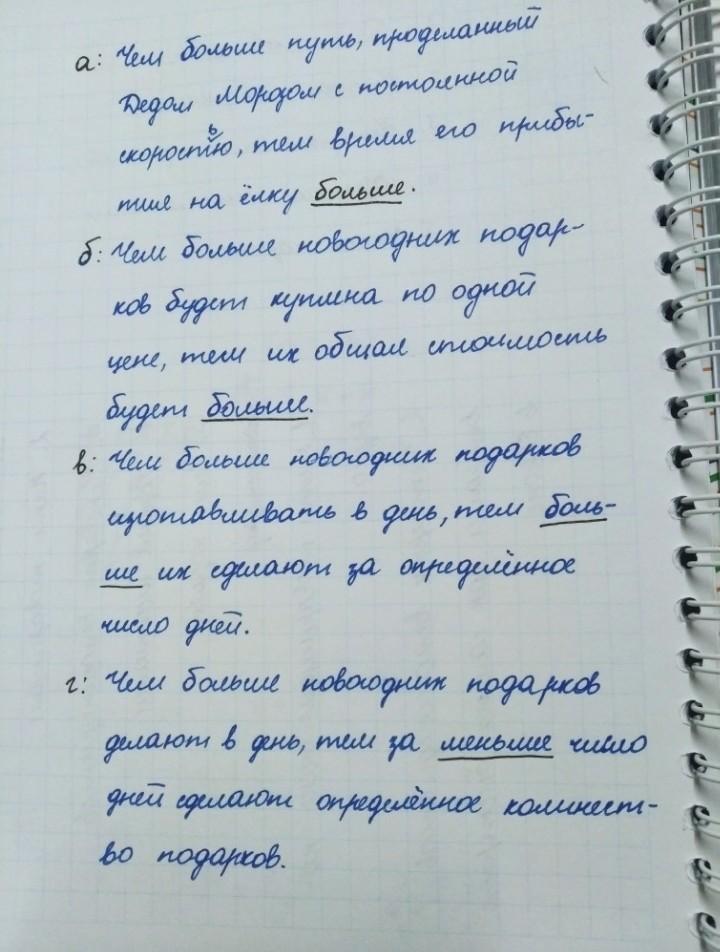 а: Чем больше путь, проделанный
Дедом Морозом с постоянной
скоростью, тем время его прибы-
тия на ёлку больше.
б: Чем больше новогодних подар-
ков будет куплена по одной
цене, тем их общая стоимость
будет больше.
в: Чем больше новогодних подарков
изготавливать в день, тем боль-
ше их сделают за определённое
число дней.
г: Чем больше новогодних подарков
делают в день, тем за меньше число
дней сделают определённое количест-
во подарков.